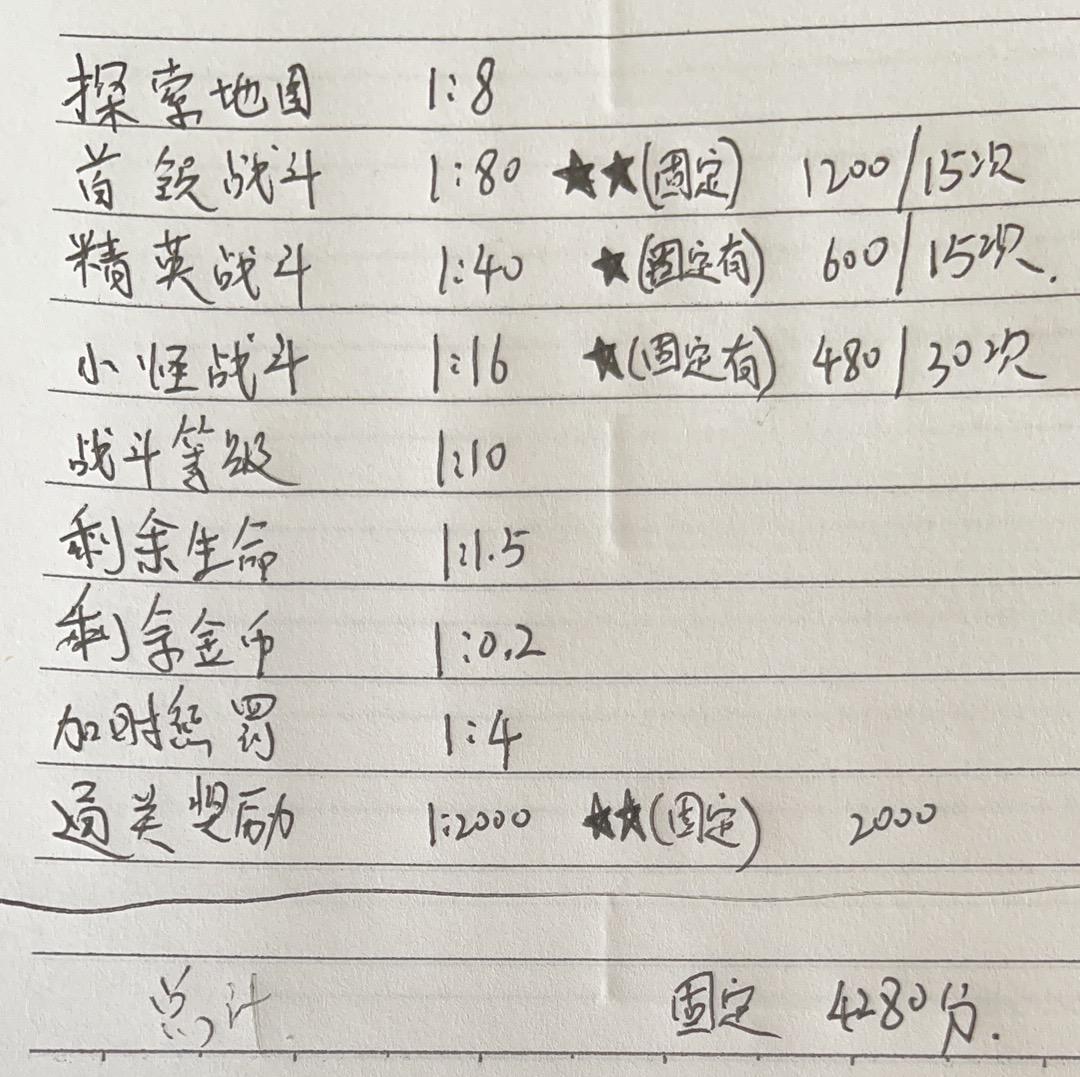 探索地图 1:8
首领战斗 1:80 ★★(固定) 1200/15次
精英战斗 1:40 ★(固定有) 600/15次.
小怪战斗 1:16 ★(固定有) 480/30次
战斗等级 1:10
剩余生命 1:1.5
剩余金币 1:0.2
加时惩罚 1:4
通关奖励 1:2000 ★★(固定) 2000
总计 固定 4280分.